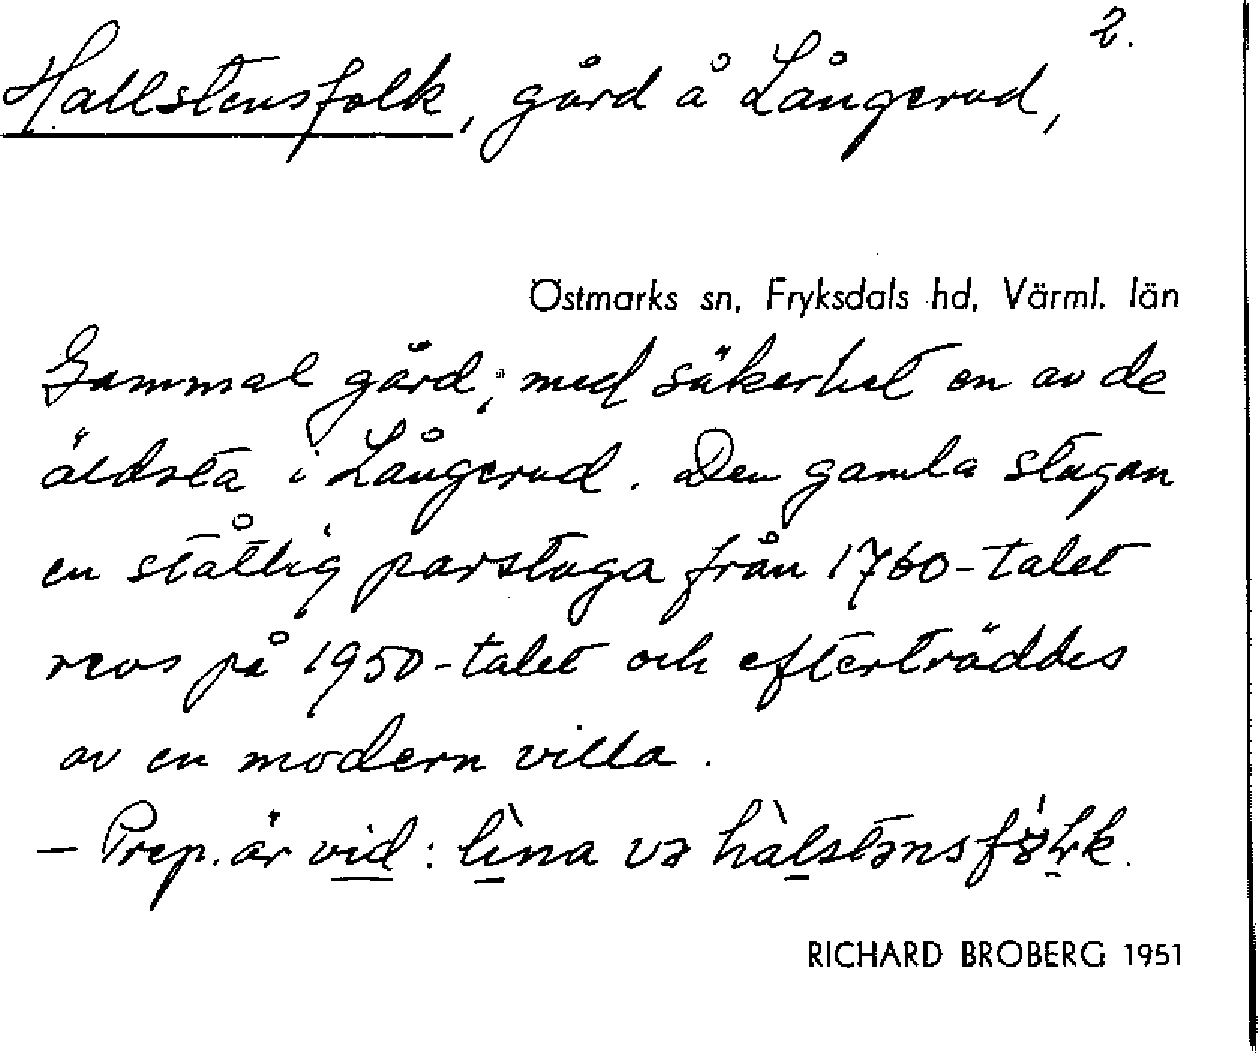 2.
Hallstensfolk, gård å Långerud,
Östmarks sn, Fryksdals hd, Värml. län
Gammal gård; med säkerhet en av de
äldsta i Långerud. Den gamla stugan
en ståtlig parstuga från 1760-talet
revs på 1950-talet och efterträddes
av en modern villa.
– Prep. är vid: lìna və
RICHARD BROBERG 1951